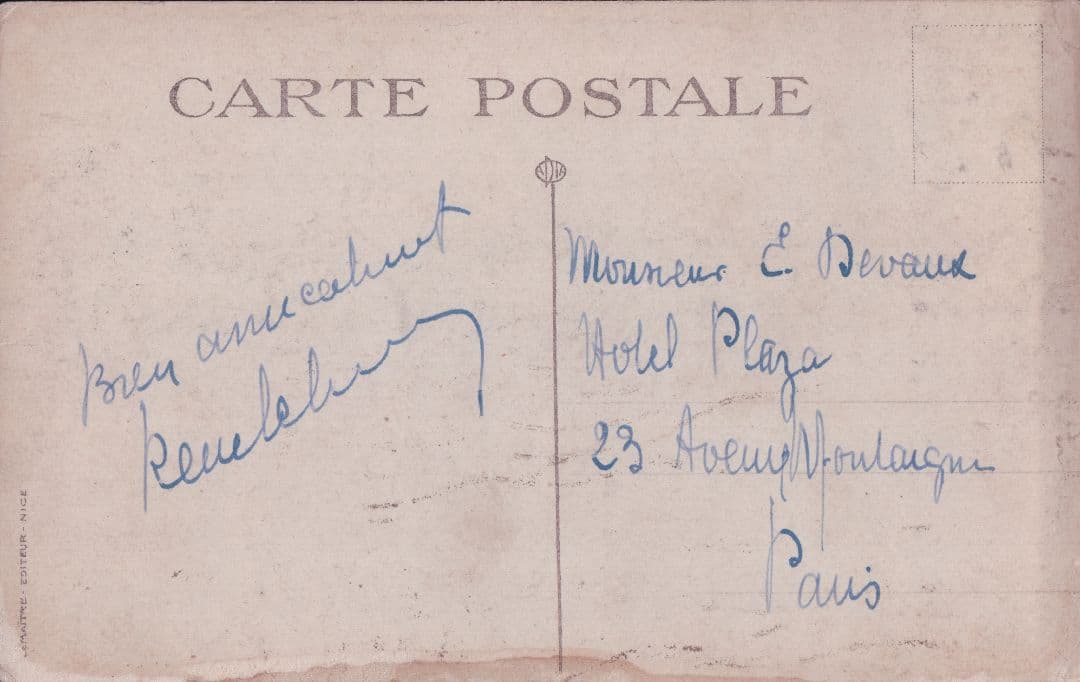 CARTE POSTALE
Bien amicalement
Monsieur E. Devaux
Hotel Plaza
23 Avenue Montaigne
Paris
LEMAITRE - EDITEUR - NICE